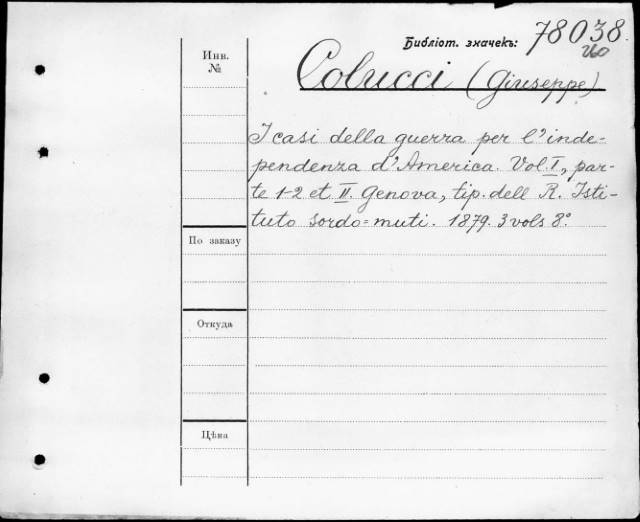 Библіот. значекъ: 78038
260
Инв.
№
Colucci (Giuseppe)
I casi della guerra per l'inde-
pendenza d'America. Vol. I, par-
te 1-2 et II. Genova, tip. dell R. Isti-
tuto sordo=muti. 1879. 3 vols 8°.
По заказу
Откуда
Цѣна